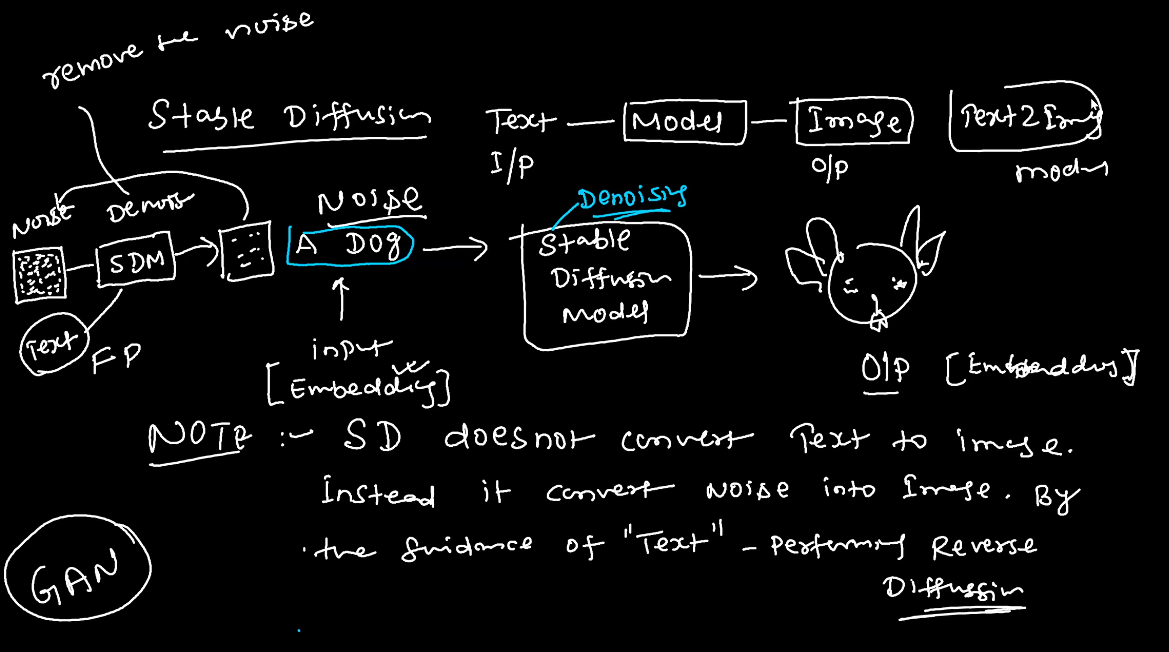 remove the noise
Stable Diffusion
Text — Model — Image
I/P
O/P
Text 2 Img
model
Noise Denoise
SDM
Text
FP
NOISE
A DOG
input
[Embedding]
Denoising
Stable
Diffusion
Model
O/P [Embeddings]
NOTE :- SD doesnot convert Text to image.
Instead it convert NOISE into Image. By
the Guidance of "Text" - Performing Reverse
Diffussion
GAN